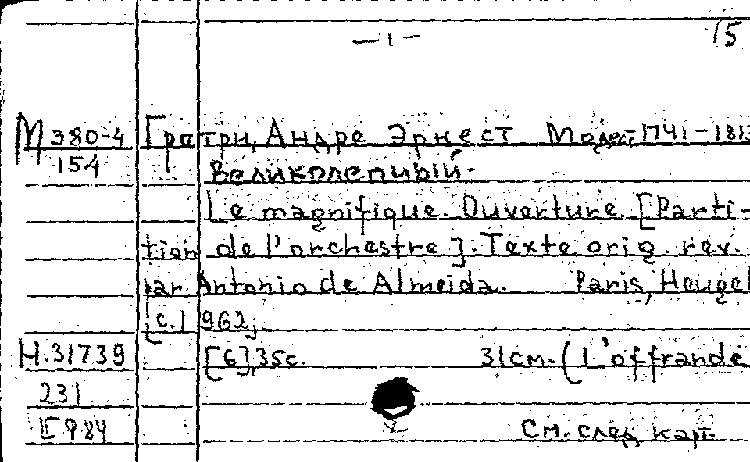 — 1 — 15
М 380-4 Гретри, Андре Эрнест Модест 1741-181
154 Великолепный.
Le magnifique. Ouverture. [Parti-
tion de l'orchestre]. Texte orig. rev.
par Antonio de Almeida. Paris, Heugel
[c.1962].
Н.31739 [6],35с. 31см. (L'offrande
231
См. след. карт.